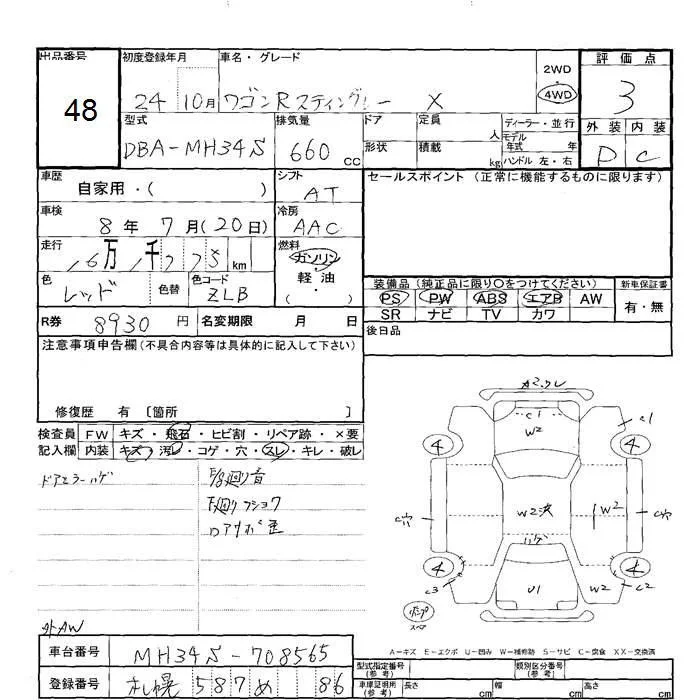 出品番号
48
初度登録年月
24 10月
車名・グレード
ワゴンRスティングレー X
2WD
・
4WD
評価点
3
外装 内装
D C
型式
DBA-MH34S
排気量
660 cc
ドア
形状
定員
人
積載
kg
ディーラー・並行
モデル
年式 年
ハンドル 左・右
車歴
自家用・( )
シフト
AT
セールスポイント (正常に機能するものに限ります)
車検
8年 7月(20日)
冷房
AAC
走行
6万1千775 km
燃料
ガソリン
・
軽油
・
( )
色
レッド
色替
色コード
ZLB
装備品(純正品に限り○をつけてください)
新車保証書
PS PW ABS エアB AW
SR ナビ TV カワ
有・無
R券 8930円
名変期限 月 日
後日品
注意事項申告欄(不具合内容等は具体的に記入して下さい)
修復歴 有 〔箇所 〕
検査員
記入欄
FW キズ・飛石・ヒビ割・リペア跡・×要
内装 キズ・汚レ・コゲ・穴・スレ・キレ・破レ
ドアミラーハゲ
F/8廻り音
F廻りフショク
ロアサポ歪
外AW
A2.クレ
C1
W2
C1
4
4
C穴
W2決
W2
C穴
ハゲ
4
4
C3
U1
W2
C2
パンプ
スペア
A-キズ E-エクボ U-凹み W-補修跡 S-サビ C-腐食 XX-交換済
車台番号
MH34S-708565
登録番号
札幌 587 め 86
型式指定番号
(参考)
類別区分番号
(参考)
車庫証明用
(参考)
長さ cm
幅 cm
高さ cm